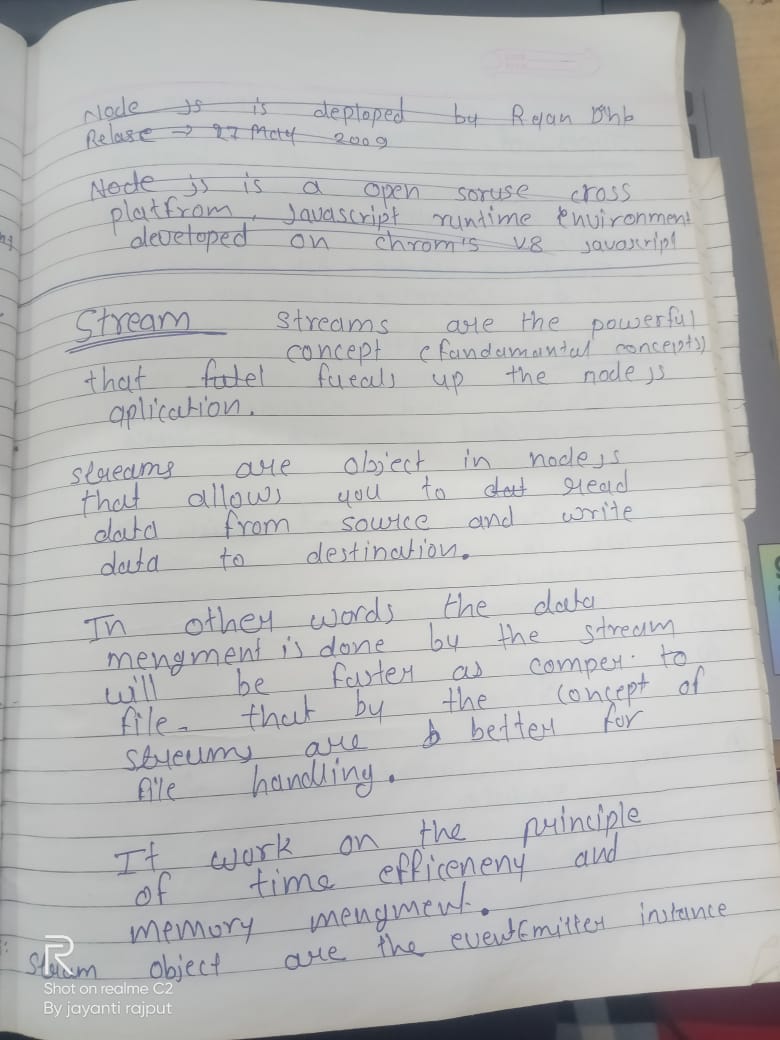 Node js is deploped by Reyan Dhb
Relase → 27 May 2009
Node js is a open soruse cross
platfrom, Javascript runtime Environment
developed on chrom's V8 javascript
Stream streams are the powerful
concept (fandamantal concepts)
that fatel fueals up the node js
aplication.
streams are object in node js
that allows you to dat read
data from source and write
data to destination.
In other words the data
mengment is done by the stream
will be faster as comper. to
file. that by the concept of
streums are b better for
file handling.
It work on the principle
of time efficeneny and
memory mengment.
Stream object are the eventEmitter instance
R
Shot on realme C2
By jayanti rajput